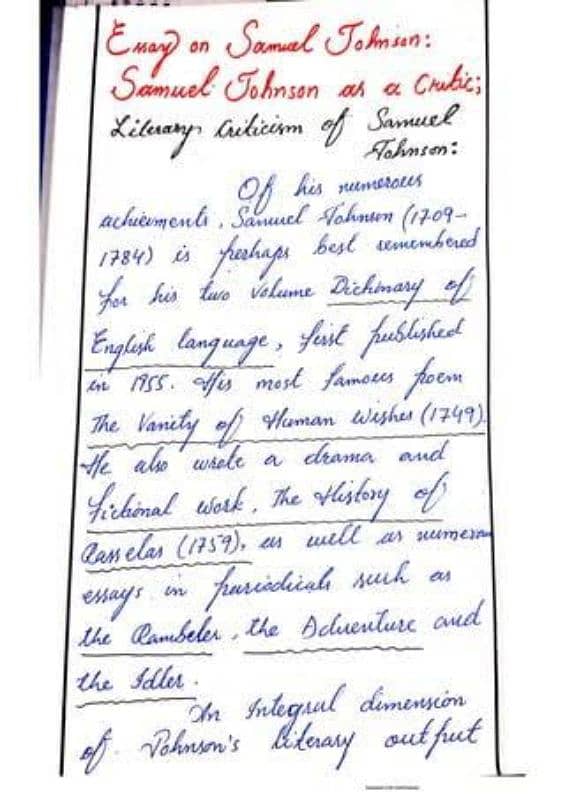 Essay on Samuel Johnson:
Samuel Johnson as a Critic;
Literary Criticism of Samuel
Johnson:
Of his numerous
achievments, Samuel Johnson (1709-
1784) is perhaps best remembered
for his two volume Dictionary of
English language, first published
in 1955. His most famous poem
The Vanity of Human wishes (1749).
He also wrote a drama and
fictional work, The History of
Rasselas (1759), as well as numerous
essays in periodicals such as
the Rambeler, the Adventure and
the Idler.
An Integral dimension
of Johnson's literary output